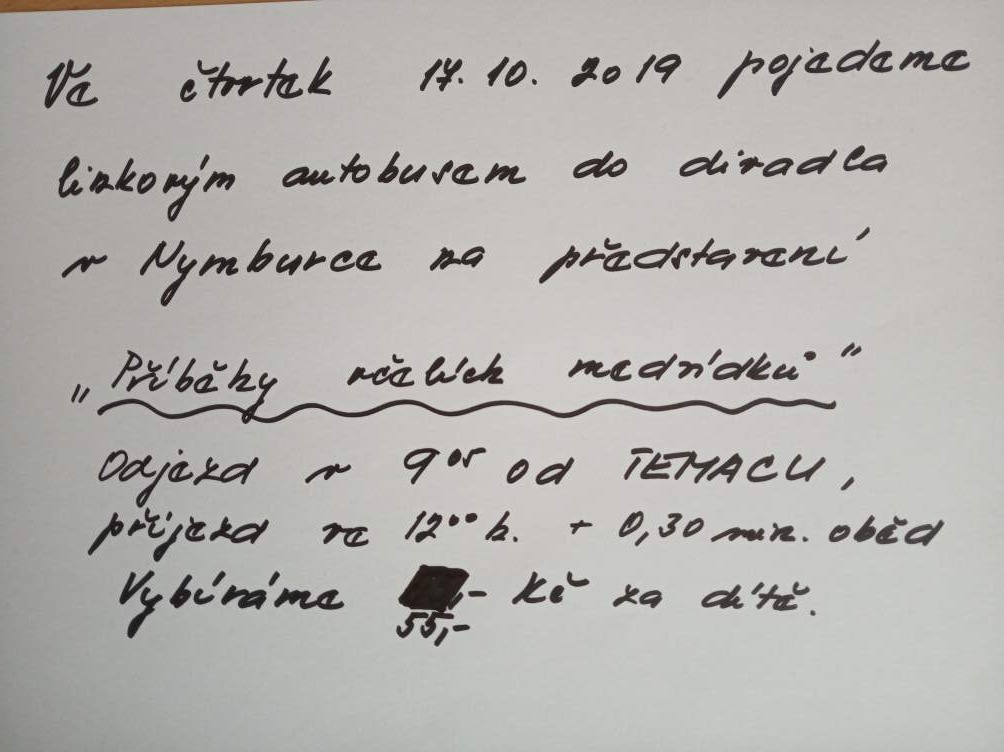 Ve čtvrtek 17. 10. 2019 pojedeme
linkovým autobusem do divadla
v Nymburce na představení
„Příběhy včelích medvídků“
Odjezd v 9⁰⁵ od TEMACU,
příjezd ve 12⁰⁰ h. + 0,30 min. oběd
Vybíráme ,- Kč za dítě.
55,-